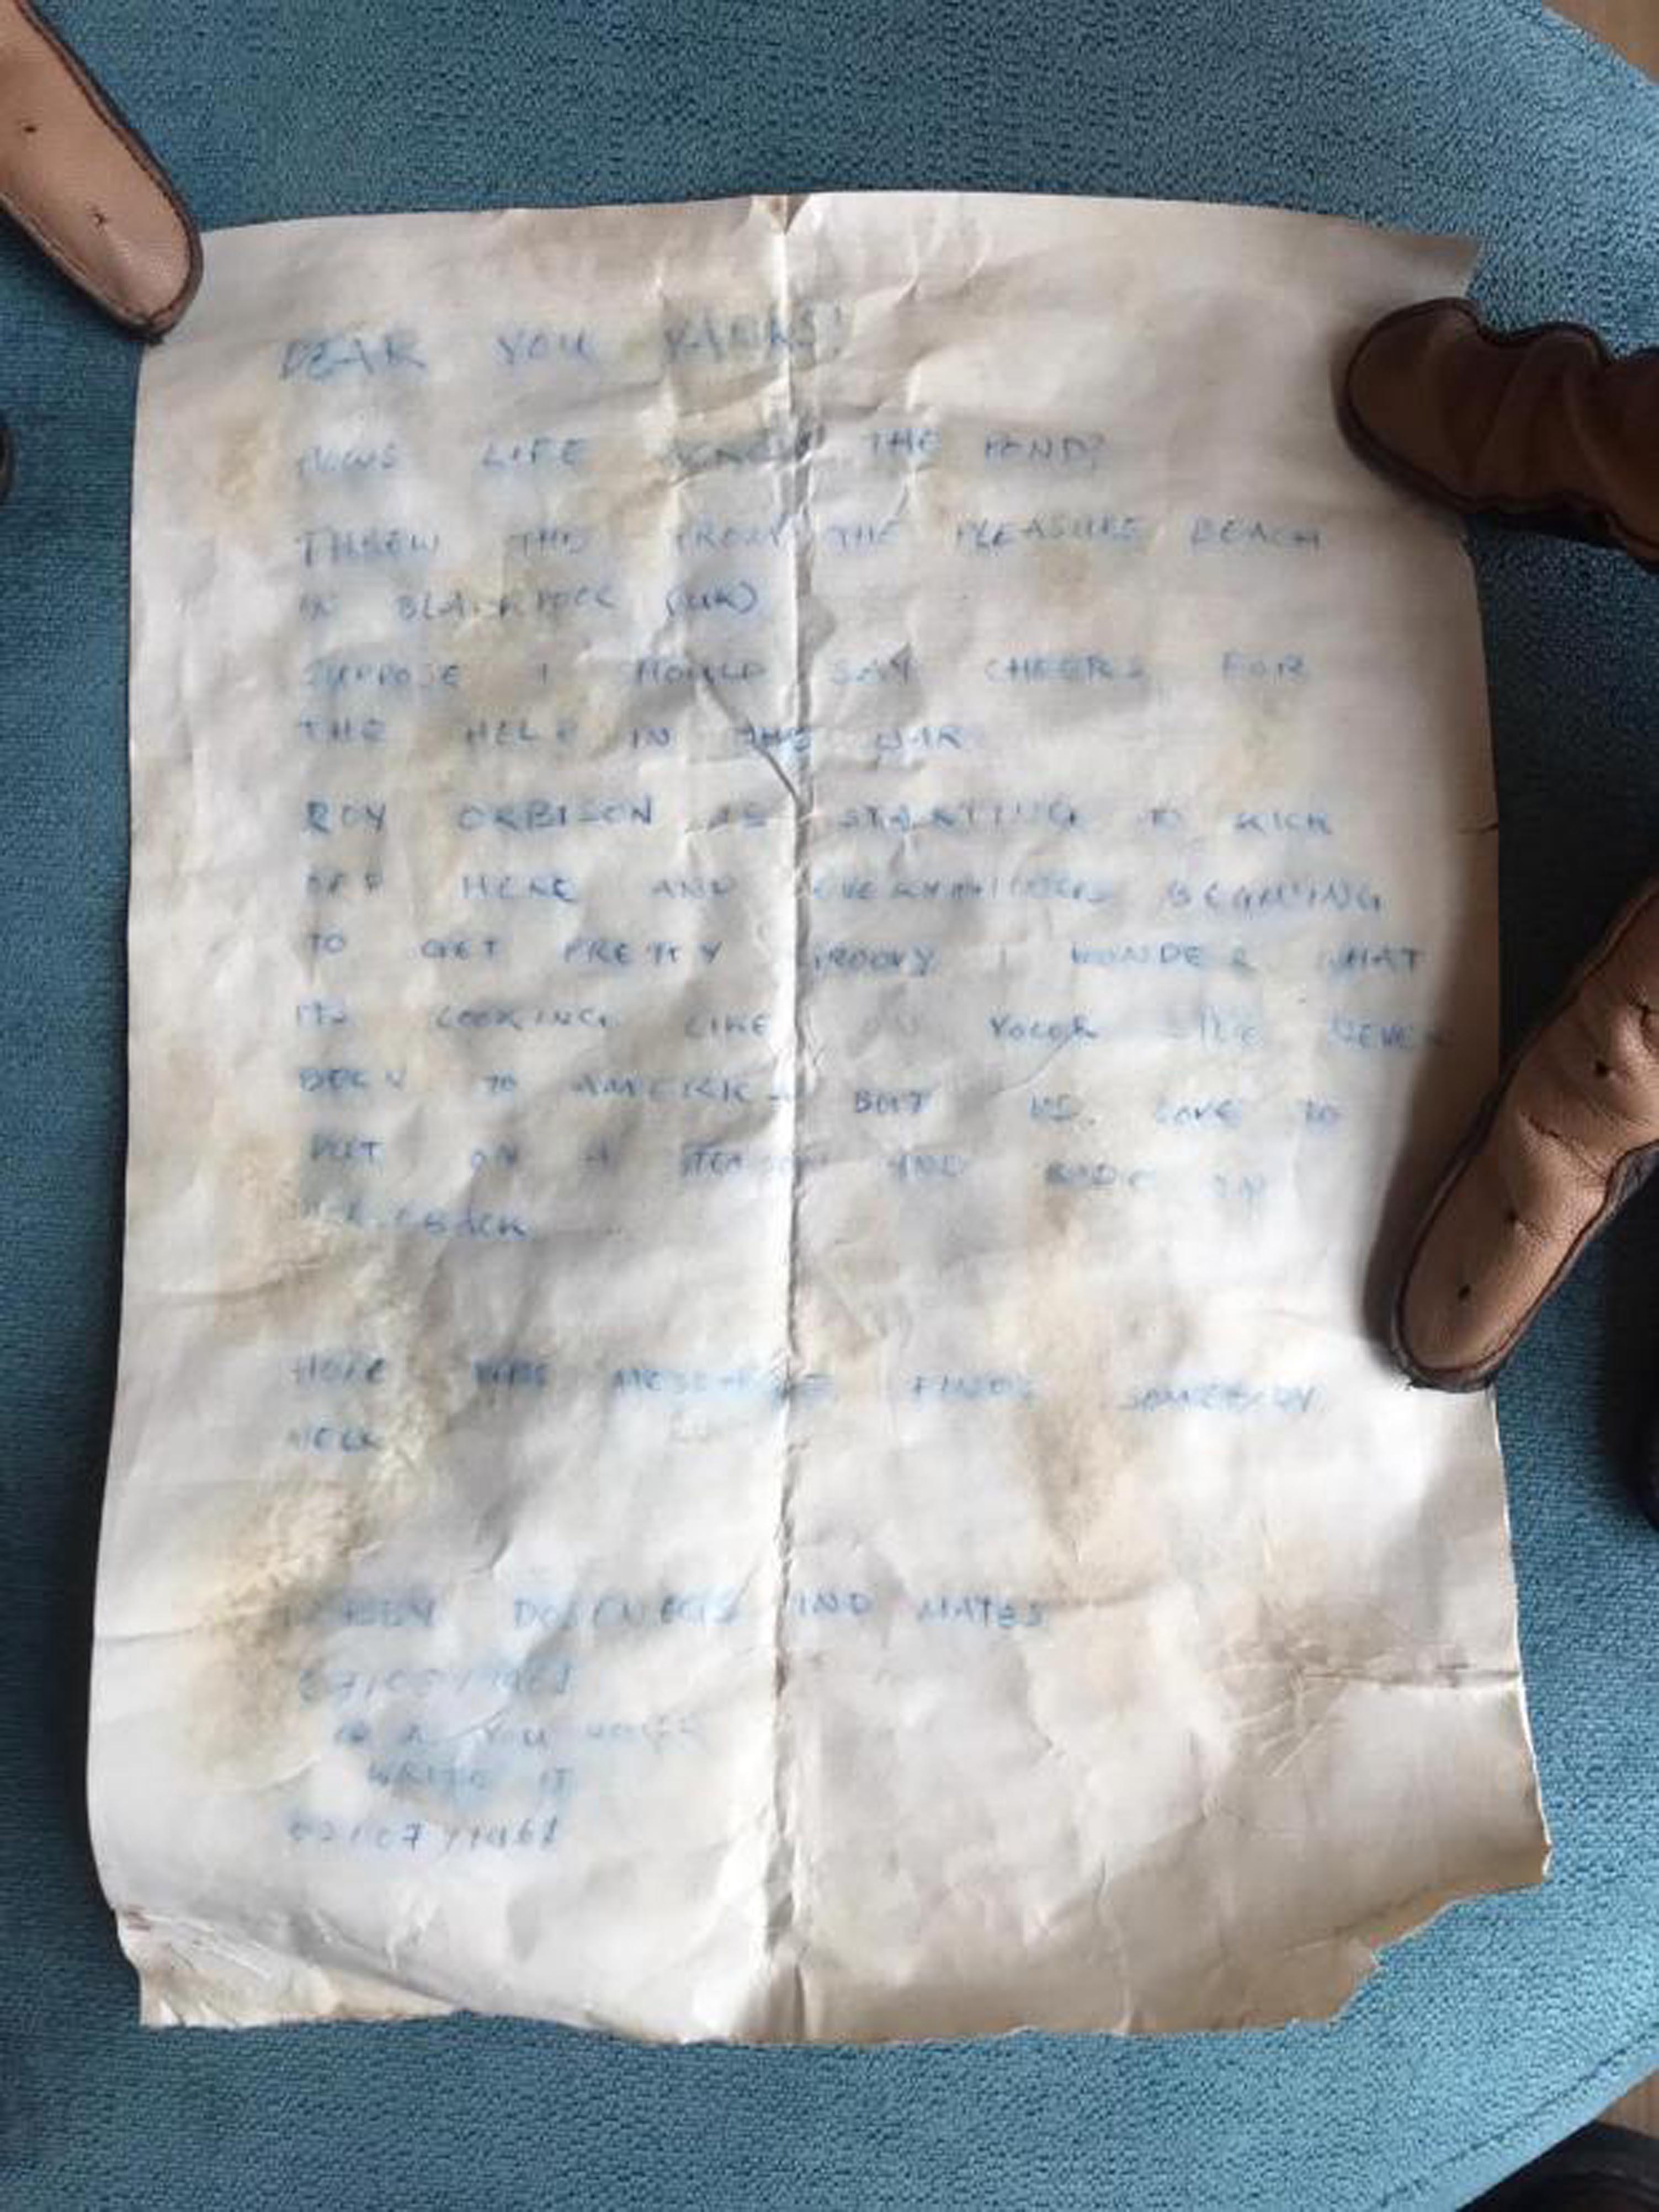 DEAR YOU YANKS!
HOWS LIFE ACROSS THE POND?
THREW THIS FROM THE PLEASURE BEACH
IN BLACKPOOL (UK)
SUPPOSE I SHOULD SAY CHEERS FOR
THE HELP IN THE WAR
ROY ORBISON IS STARTING TO KICK
OFF HERE AND BEGINING
TO GET PRETTY GROOVY I WONDER WHAT
ITS LOOKING LIKE ON YOUR
BEEN TO AMERICA BUT LOVE TO
PUT ON A STETSON AND
HORSEBACK
HOPE THIS MESSAGE FINDS SOMEBODY
WELL
AND MATES
YOU
WRITE IT